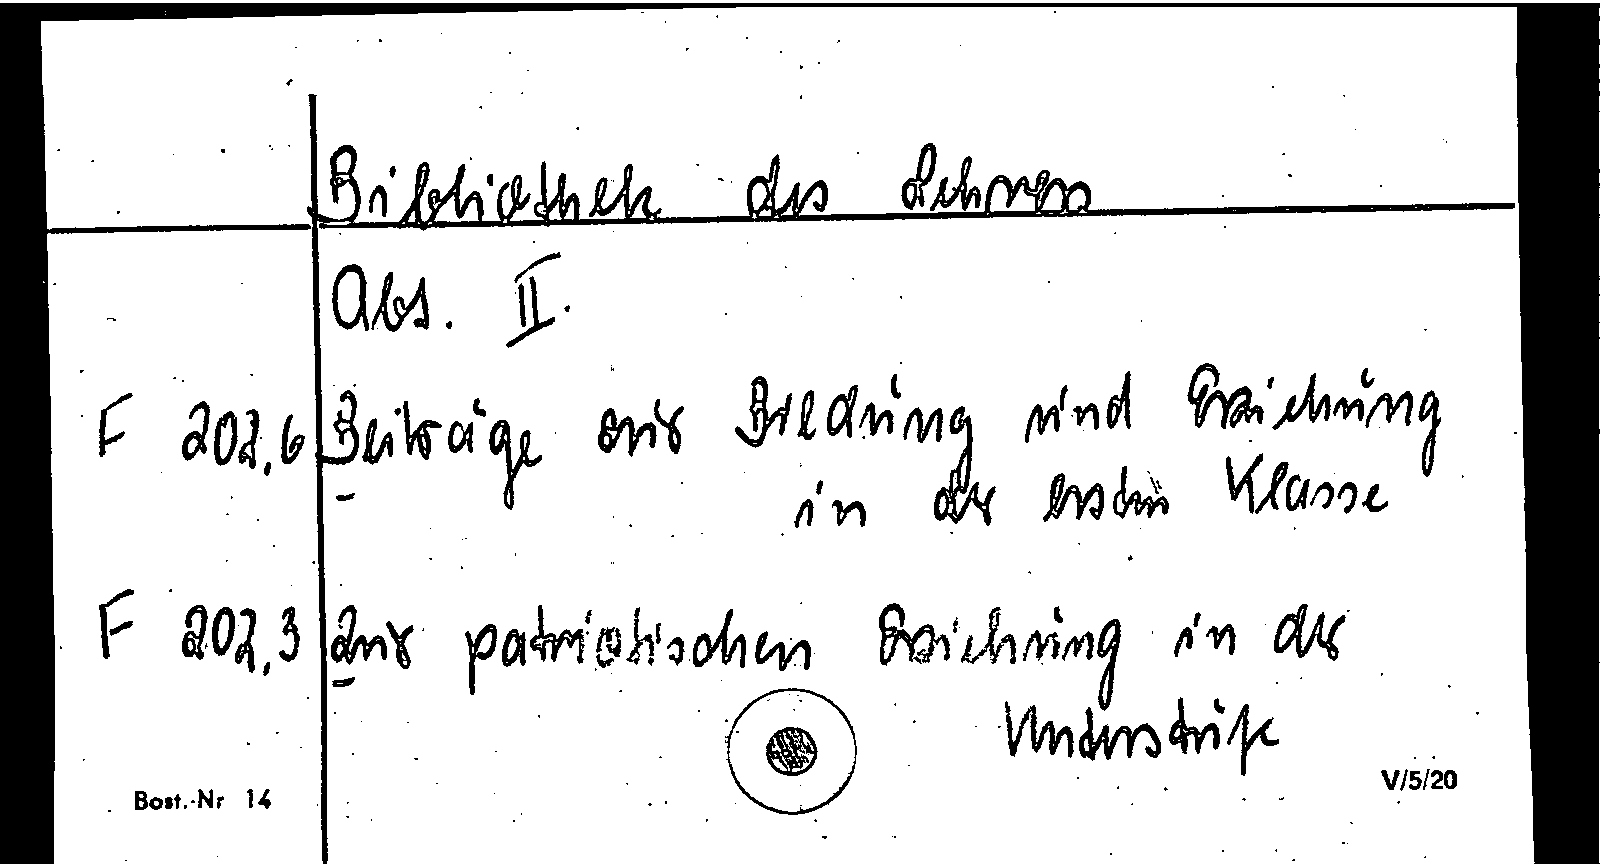 Bibliothek des Lehrers
Abs. II.
F 202,6 Beiträge zur Bildung und Erziehung
in der ersten Klasse
F 202,3 Zur patriotischen Erziehung in der
Unterstufe
Best.-Nr 14
V/5/20